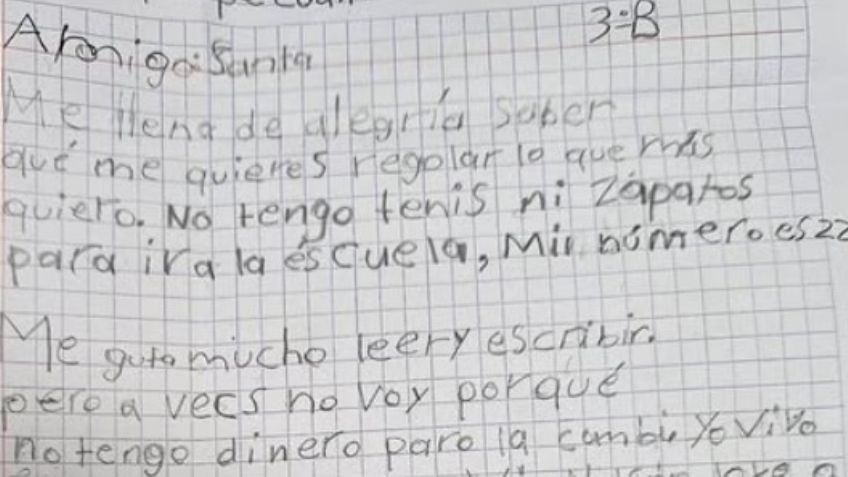 3-B
Amigo: Santa
Me llena de alegría saber
qué me quieres regalar lo que más
quiero. No tengo tenis ni zápatos
para ir a la éscuela, Mi número es 22
Me guta mucho leer y escribir.
pero a vecs no voy porqué
no tengo dinero para la cambi yo vivo